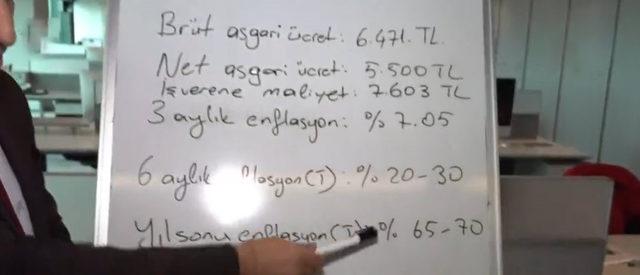 Brüt asgari ücret: 6.471. TL.
Net asgari ücret: 5.500 TL
İşverene maliyet: 7.603 TL
3 aylık enflasyon: % 7.05
6 aylık flasyon (T): % 20-30
Yılsonu enflasyon (T) % 65-70